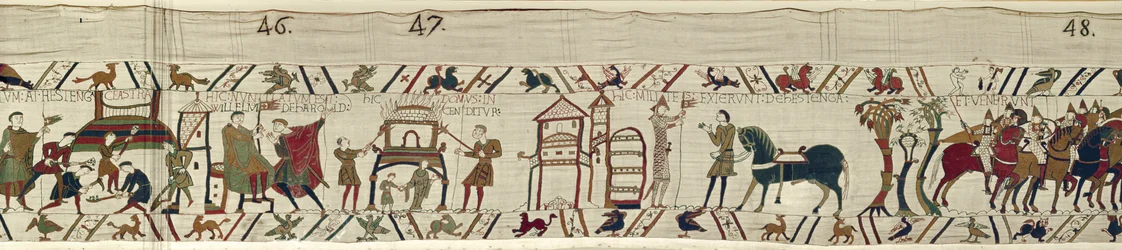 46.
47.
48.
VM: AT: HESTENG
CEASTRA
HIC: NVNTIATVM EST:
WILLELM
DE HAROLD:
HIC DOMVS: IN
CENDITVR:
HIC: MILITES: EXIERVNT: DE HESTENGA:
ET VENERVNT